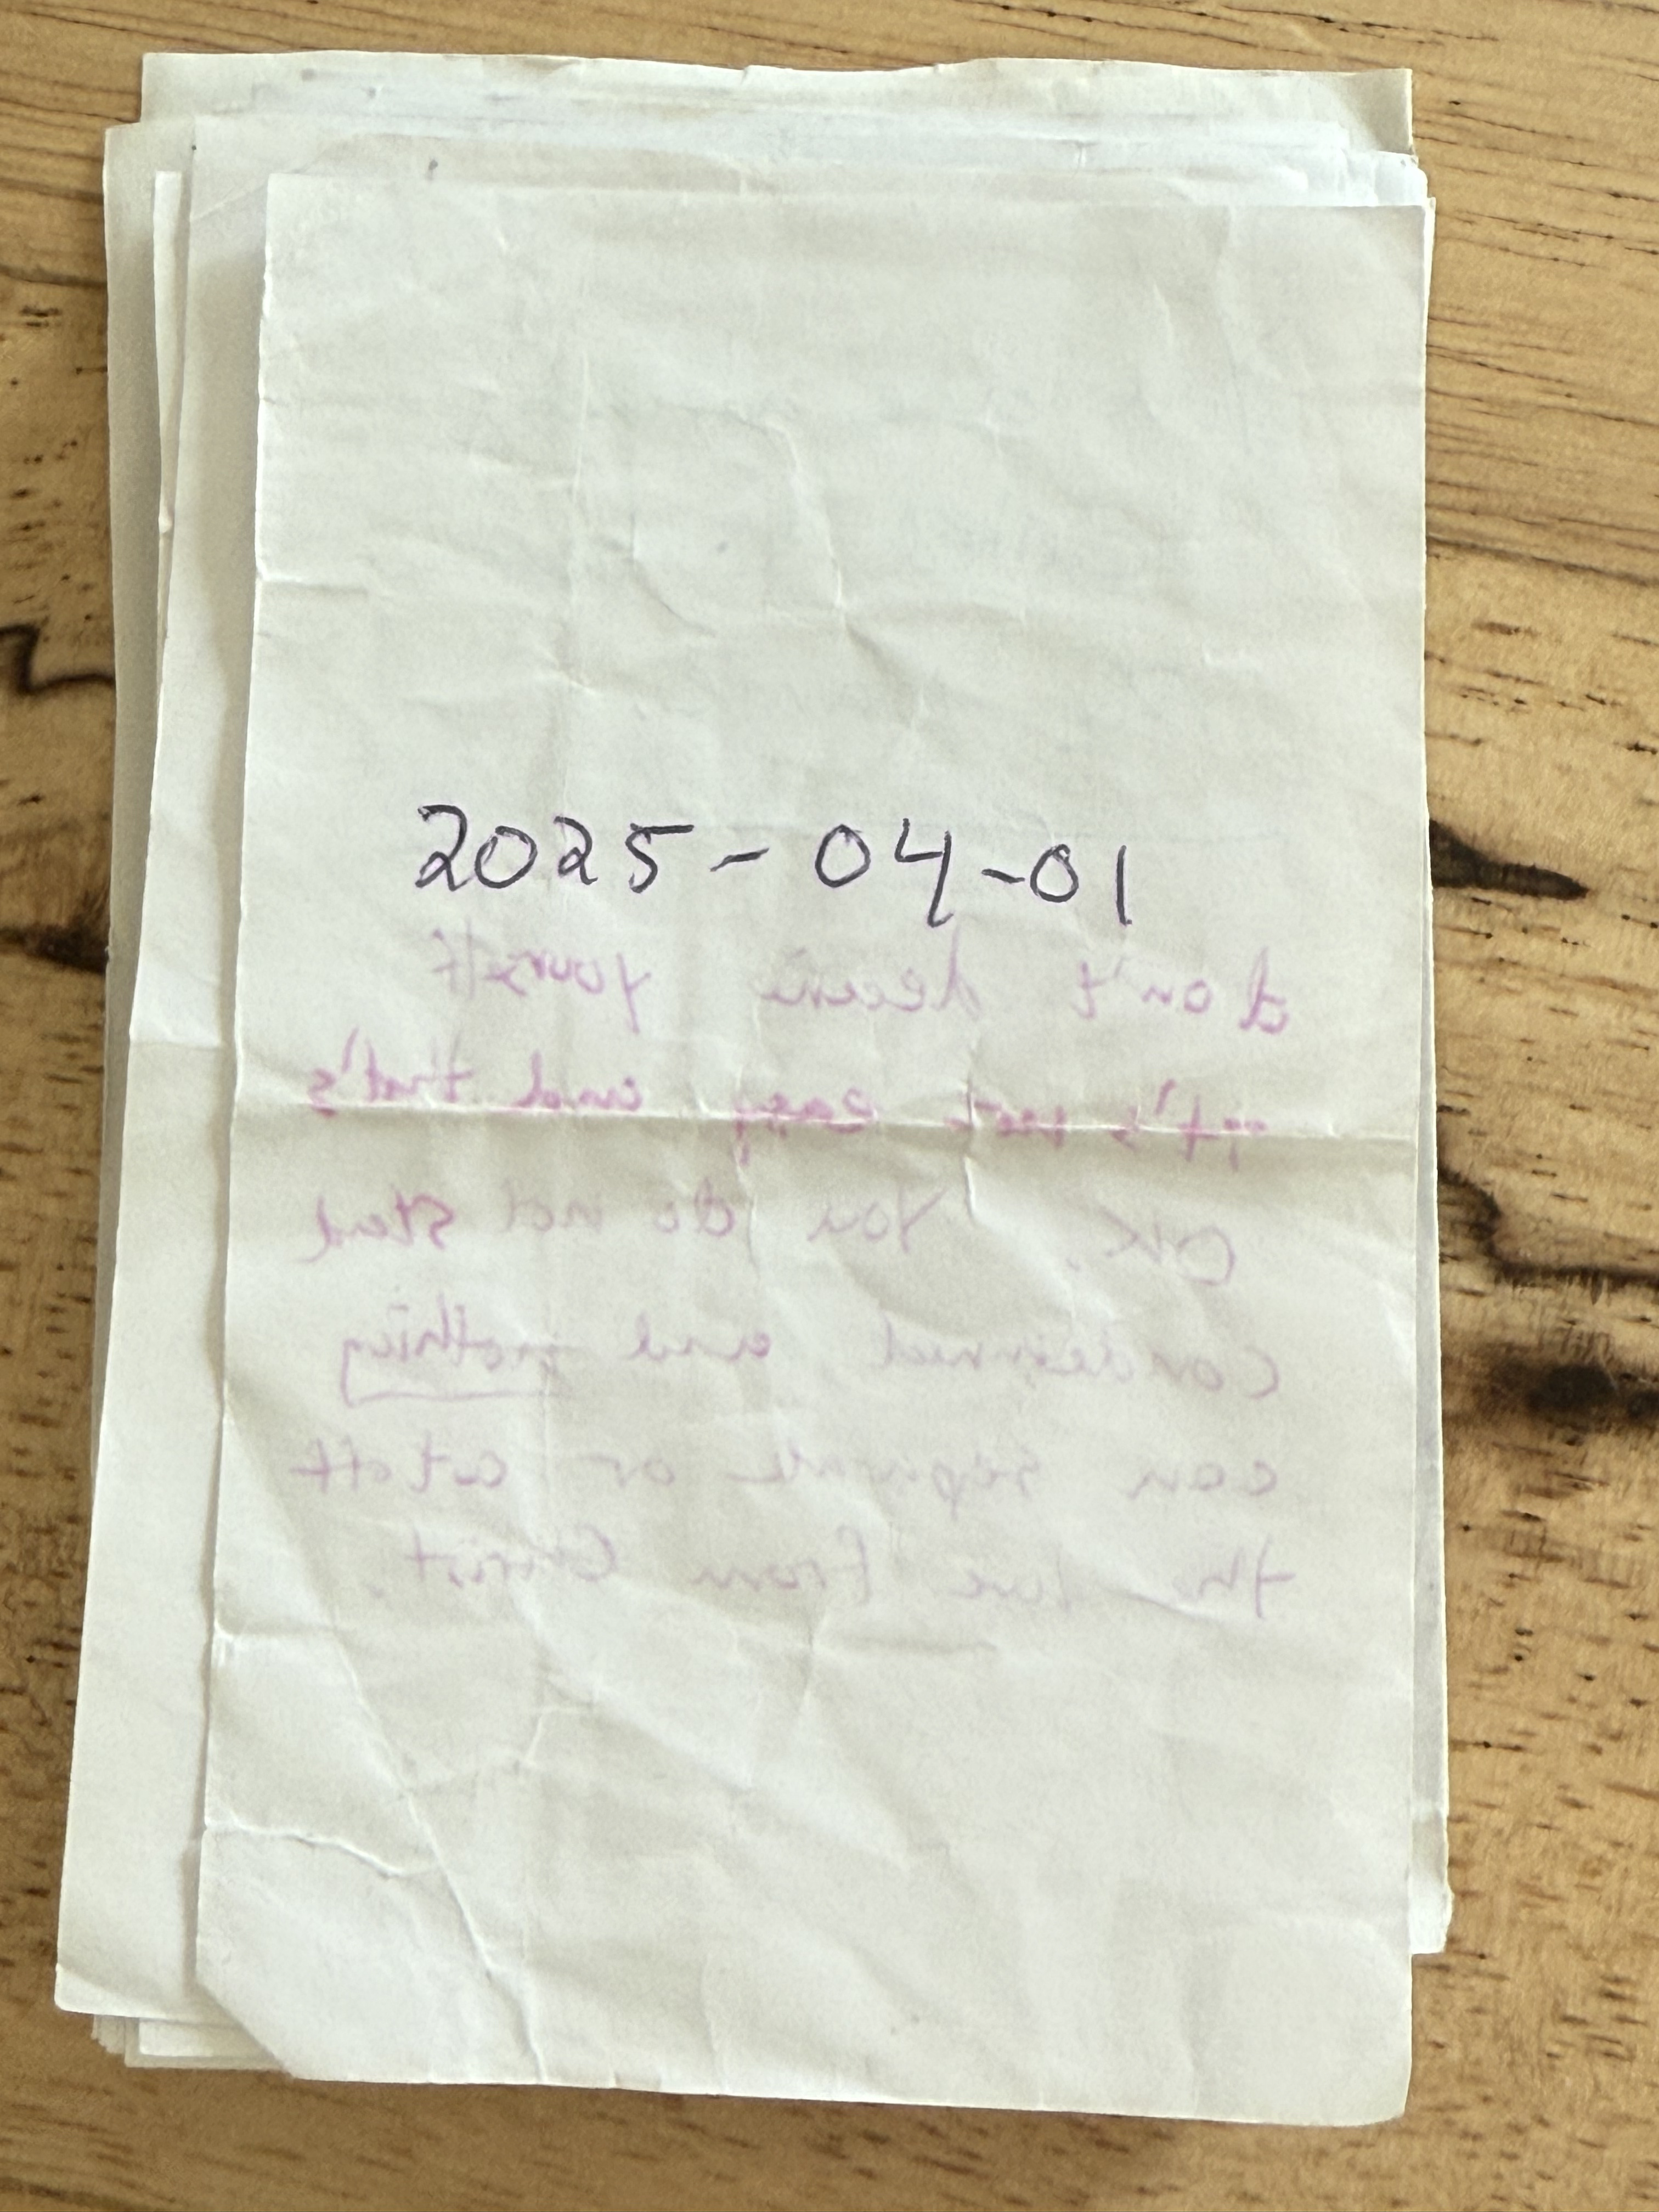 2025-04-01
don't deceive yourself
it's not easy and that's
OK. You do not stand
condemned and nothing
can separate or cut off
the love from Christ.